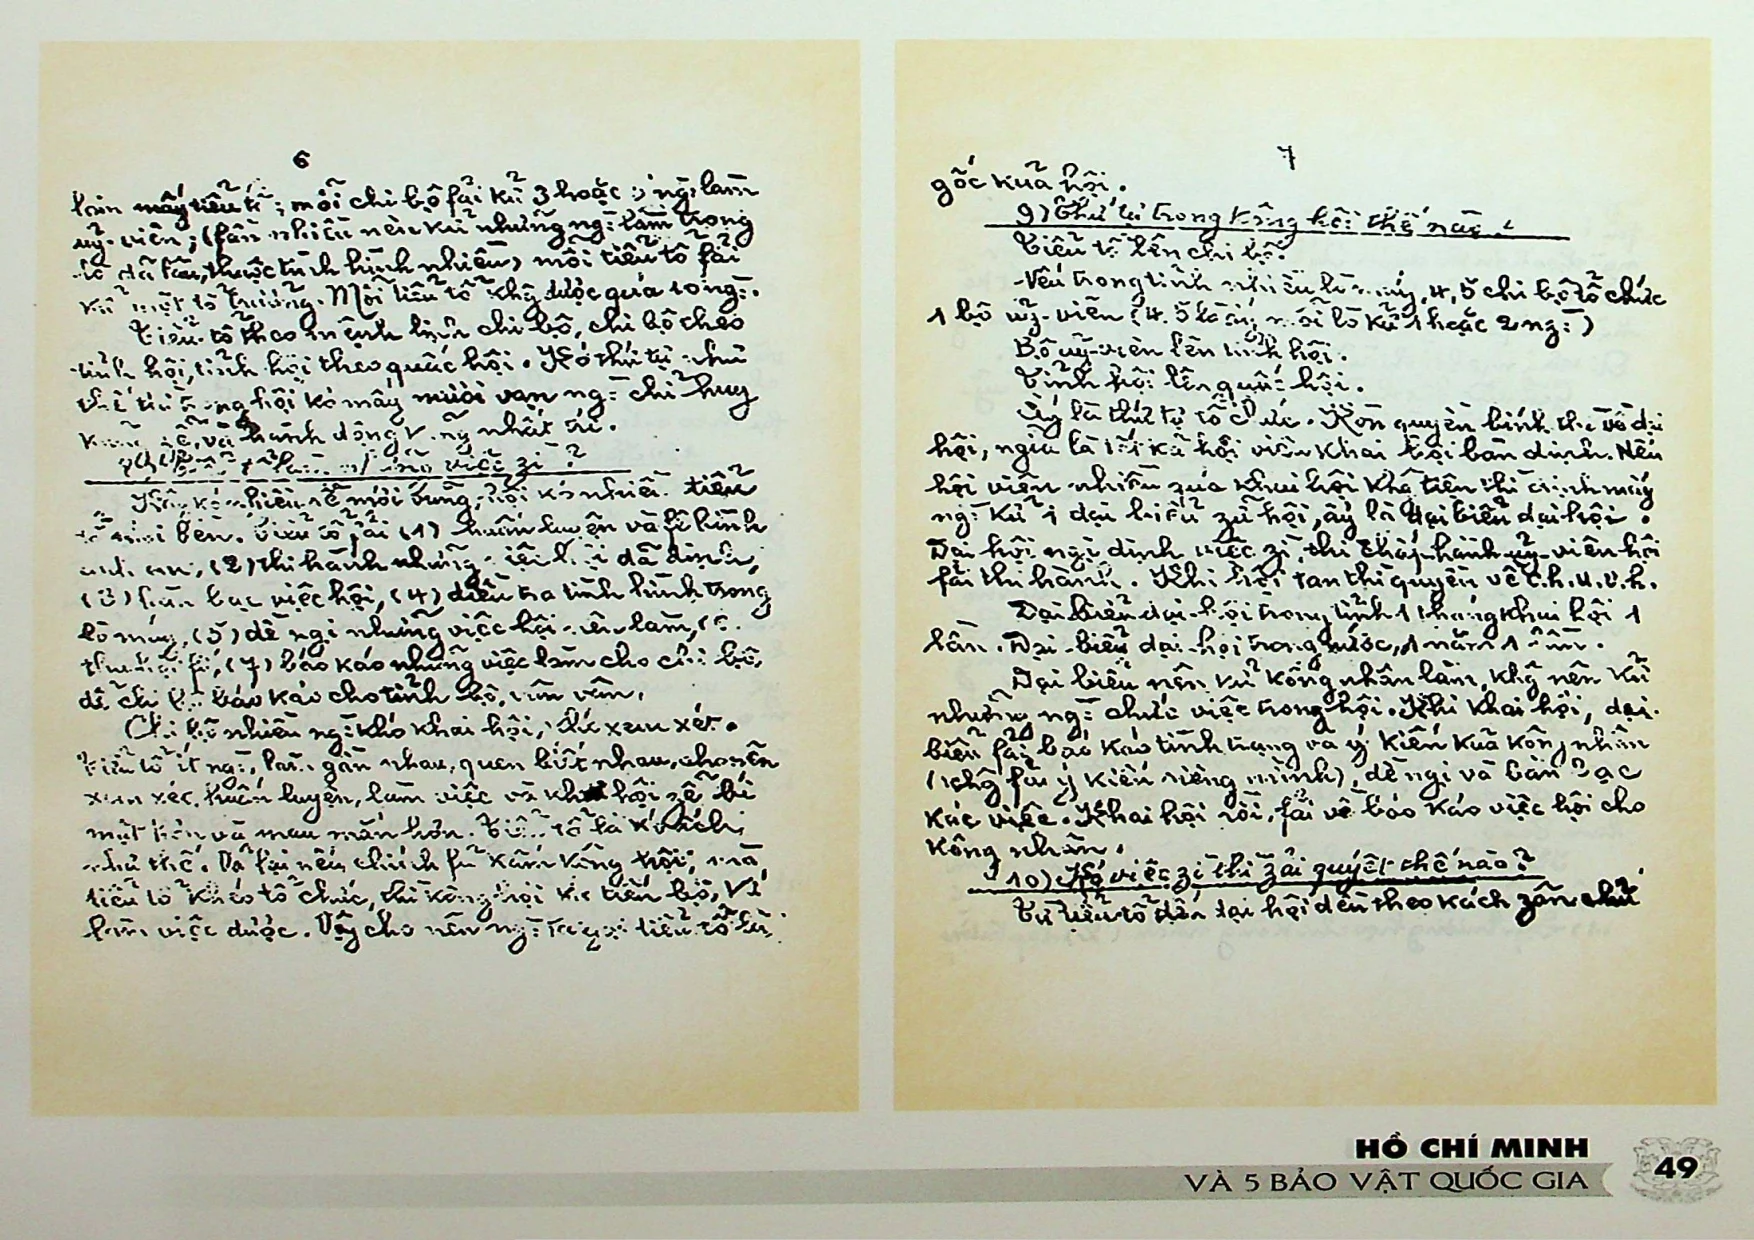 6
mấy tiểu tổ; mỗi chi bộ fải kử 3 hoặc 5 ng: làm
uỷ-viên; (fần nhiều nên kử những ng: làm trong
thuộc tình hình nhiều) mỗi tiểu tổ fải
kử một tổ trưởng. Mỗi tiểu tổ khg được qúa 10 ng:.
Tiểu tổ theo mệnh lịnh chi bộ, chi bộ theo
tỉnh hội, tỉnh hội theo quốc hội. Kó thứ tự như
thế thì trong hội kó mấy mươi vạn ng: chỉ huy
và hành động kũng nhất trí.
việc zì?
hội kó nhiều tiểu
tổ mới bền. Tiểu tổ fải (1) huấn luyện và fê bình
anh em, (2) thi hành những việc hội đã định,
(3) bàn bạc việc hội, (4) điều tra tình hình trong
lò máy, (5) đề nghị những việc hội nên làm, (6)
thu hội fí, (7) báo káo những việc làm cho chi bộ,
để chi bộ báo káo cho tỉnh bộ, vân vân.
Chi bộ nhiều ng: khó khai hội, khó xem xét.
Tiểu tổ ít ng:, làm gần nhau, quen biết nhau, cho nên
xem xét, huấn luyện, làm việc và khai hội zễ bí
mật hơn và mau mắn hơn. Tiểu tổ là
như thế. Vả lại nếu chính fủ kấm kông hội, mà
tiểu tổ khéo tổ chức, thì kông hội kứ tiến bộ, kứ
làm việc được. Vậy cho nên ng: ta gọi tiểu tổ là
7
gốc kuả hội.
9) Thứ tự trong kông hội thế nào?
Tiểu tổ lên chi bộ.
Nếu trong tỉnh nhiều lò máy, 4, 5 chi bộ tổ chức
1 bộ uỷ-viên (4. 5 lò ấy, mỗi lò kử 1 hoặc 2 ng:)
Bộ uỷ-viên lên tỉnh hội.
Tỉnh hội lên quốc hội.
Ấy là thứ tự tổ chức. Kòn quyền bính thì về đại
hội, ngĩa là tất kả hội viên khai hội bàn định. Nếu
hội viên nhiều quá khai hội khg tiện thì mấy
ng: kử 1 đại biểu zự hội, ấy là đại biểu đại hội.
Đại hội ngị định việc zì, thì chấp-hành uỷ-viên hội
fải thi hành. Khi hội tan thì quyền về c.h.u.v.h.
Đại biểu đại-hội trong tỉnh 1 tháng khai hội 1
lần. Đại-biểu đại-hội trong nước, 1 năm 1 lần.
Đại biểu nên kử kông nhân làm, khg nên kử
những ng: chức việc trong hội. Khi khai hội, đại
biểu fải báo káo tình trạng và ý kiến kuả kông nhân
(khg fải ý kiến riêng mình), đề ngị và bàn bạc
kác việc. Khai hội rồi, fải về báo káo việc hội cho
kông nhân.
10) Kó việc zì thì zải quyết thế nào?
Từ tiểu tổ đến đại hội đều theo kách zân chủ
HỒ CHÍ MINH
VÀ 5 BẢO VẬT QUỐC GIA
49